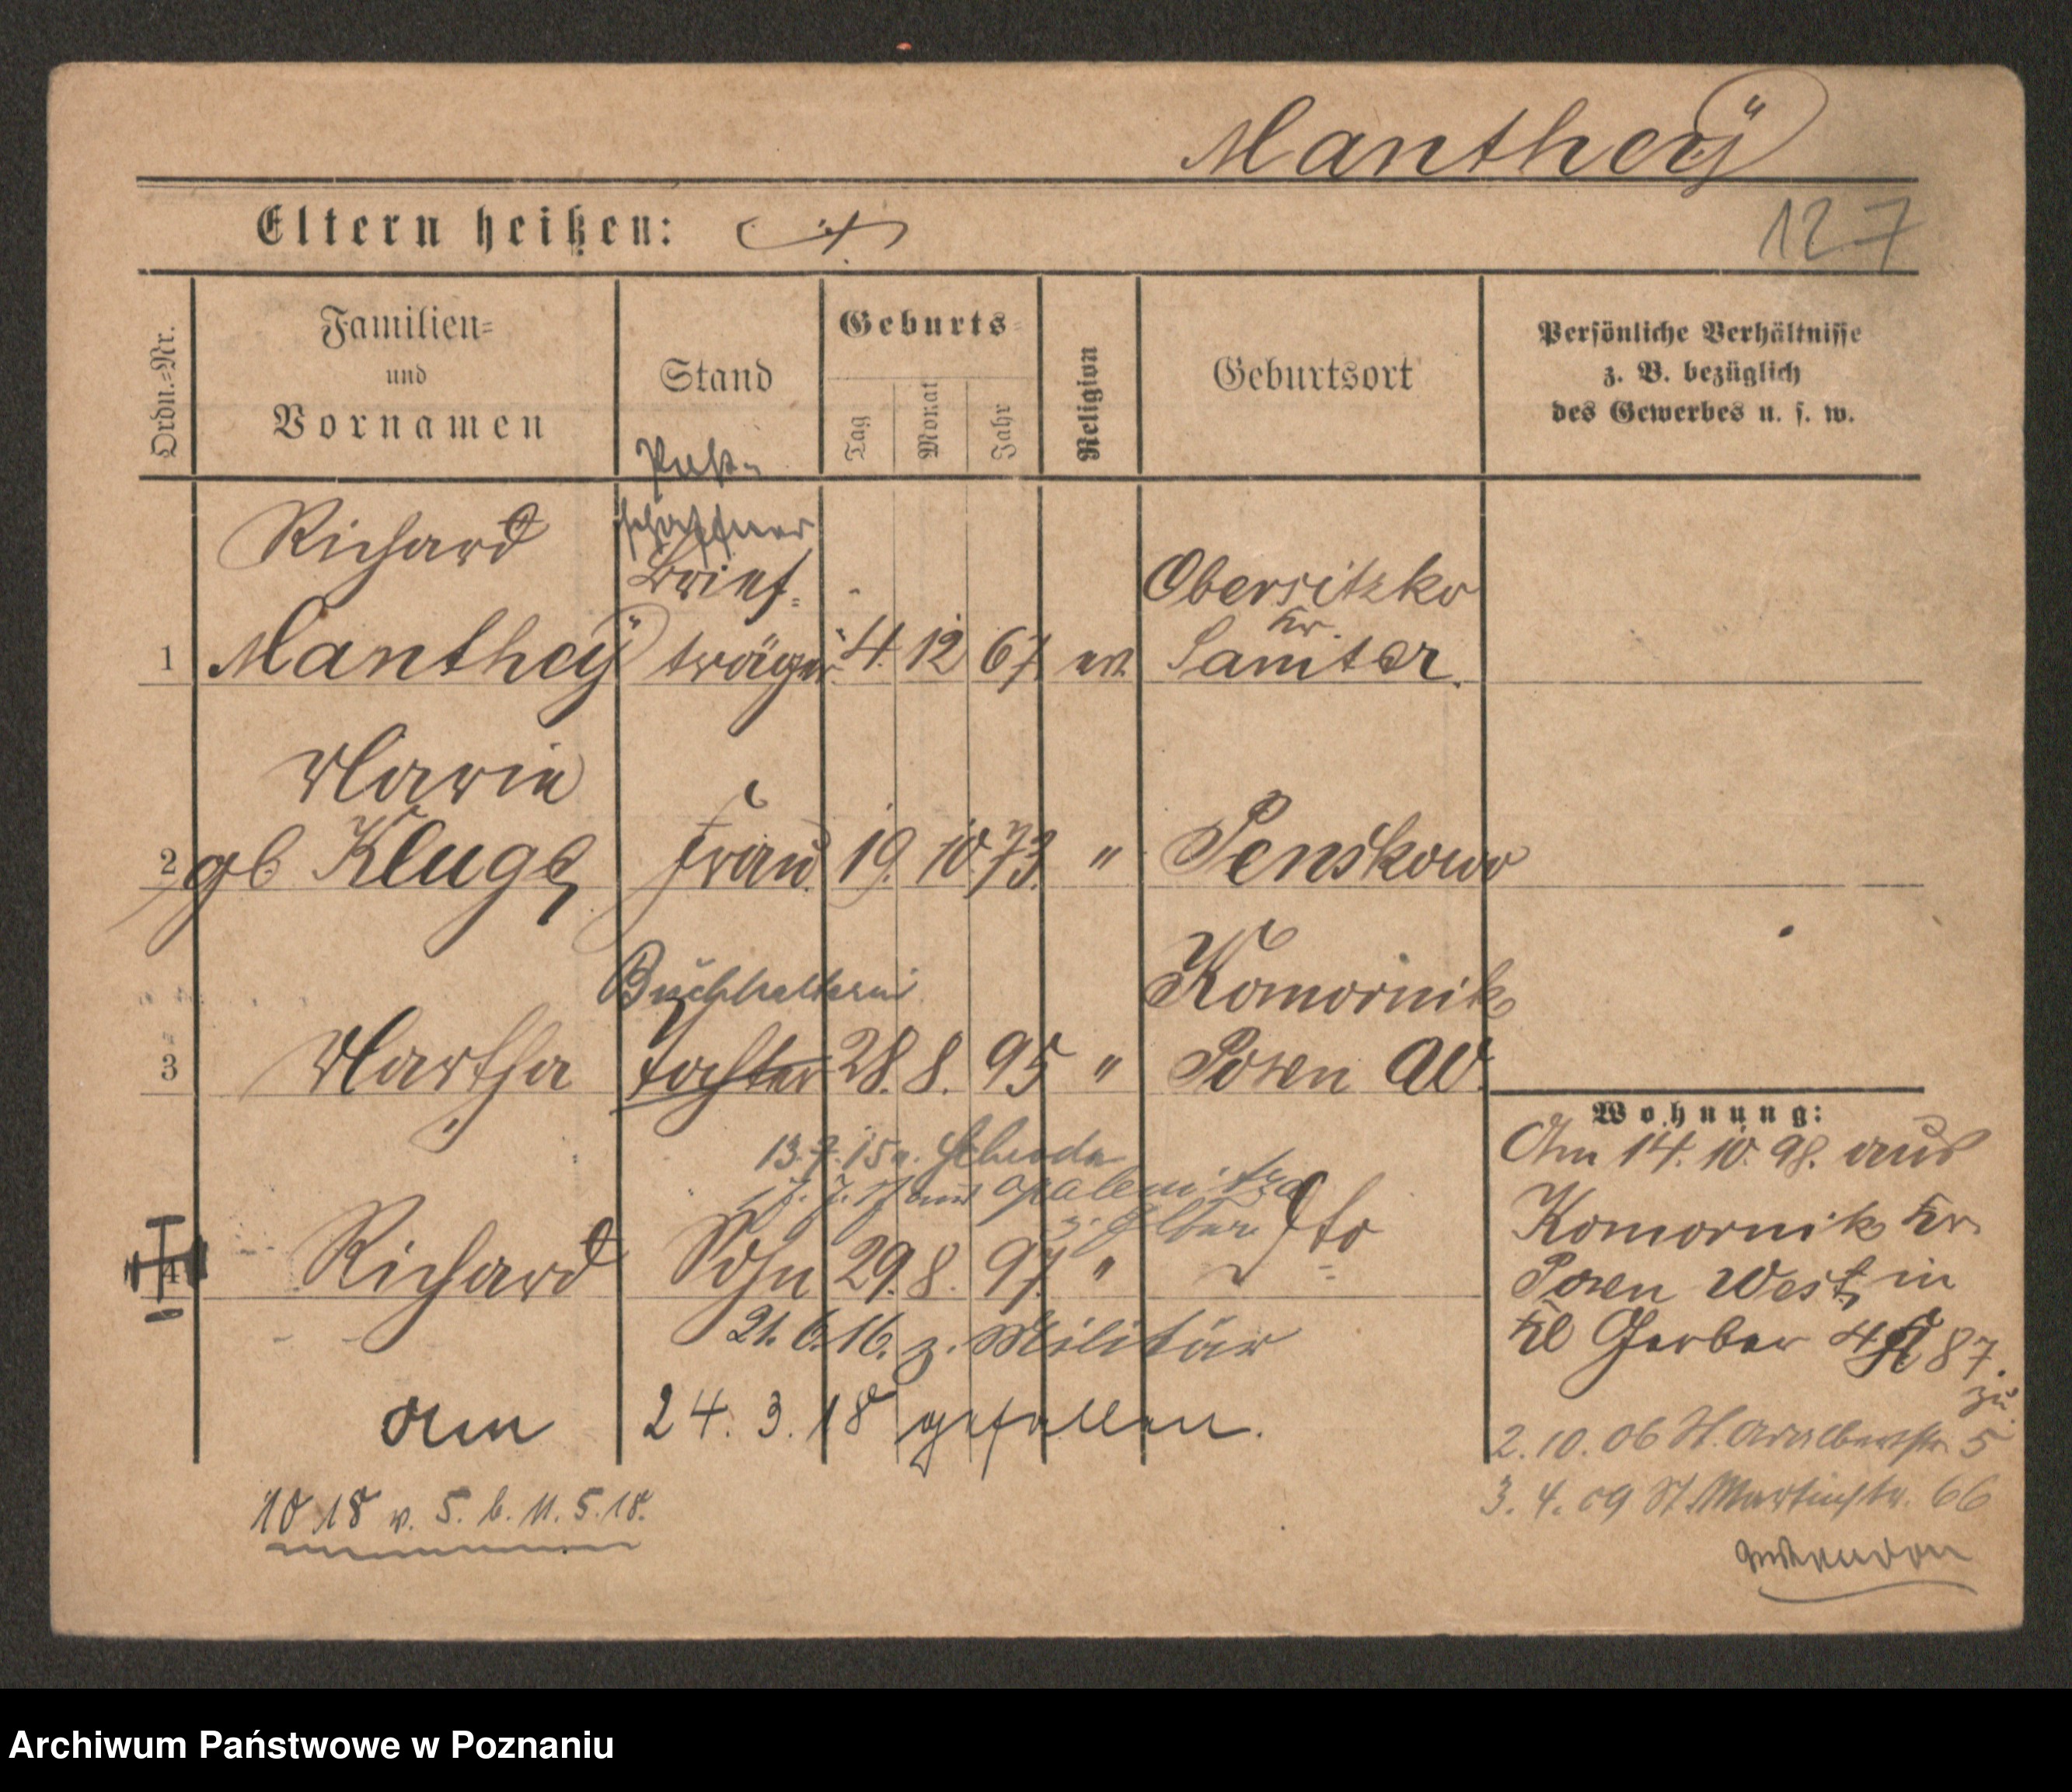 Mantheÿ
127
Eltern heißen:
Ordn.=Nr.
Familien=
und
Vornamen
Stand
Geburts=
Tag
Monat
Jahr
Religion
Geburtsort
Persönliche Verhältnisse
z. B. bezüglich
des Gewerbes u. s. w.
Post-
schaffner
Richard
Brief=
Obersitzko
Kr.
1 Mantheÿ träger 4. 12 67 ev. Samter.
Marie
2 gb Kluge Frau 19. 10. 73. " Penskowo
Buchhalterin
Komornik
3 Martha Tochter 28. 8. 95 " Posen W.
13. 7. 15 a. Schroda
7. 7. 17 aus Opalenitza
z. Eltern
4 Richard Sohn 29. 8. 97. " Dto
21. 6. 16. z. Militär
am 24. 3. 18 gefallen.
10 18 v. 5. b. 11. 5. 18.
Wohnung:
Am 14. 10. 98. aus
Komornik Kr.
Posen West, in
Kl Gerber 4 87.
zu
2. 10. 06 St. Adalbertstr. 5
3. 4. 09 St. Martinstr. 66
Archiwum Państwowe w Poznaniu